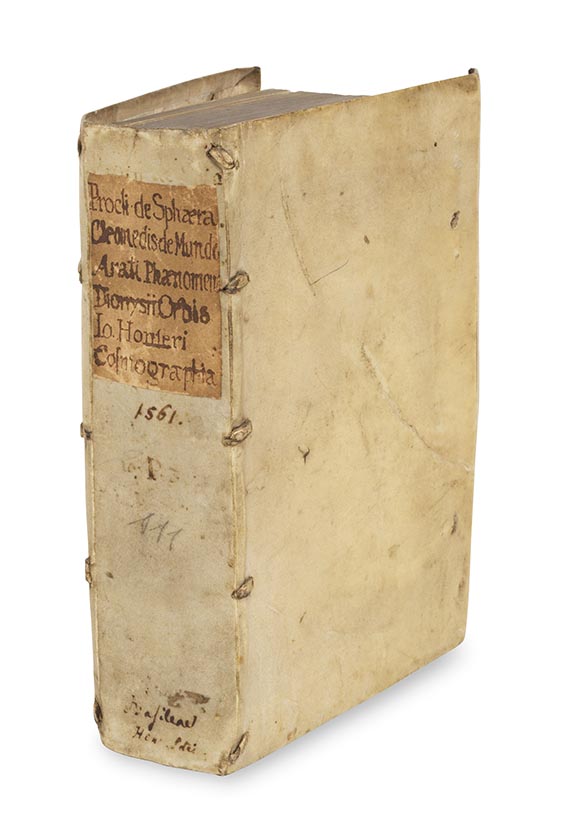 Procli de Sphæra
Cleomedis de Mundo
Arati Phænomen
Dionysii Orbis
Io. Honteri
Cosmographia
1561.
P
111
Basileae